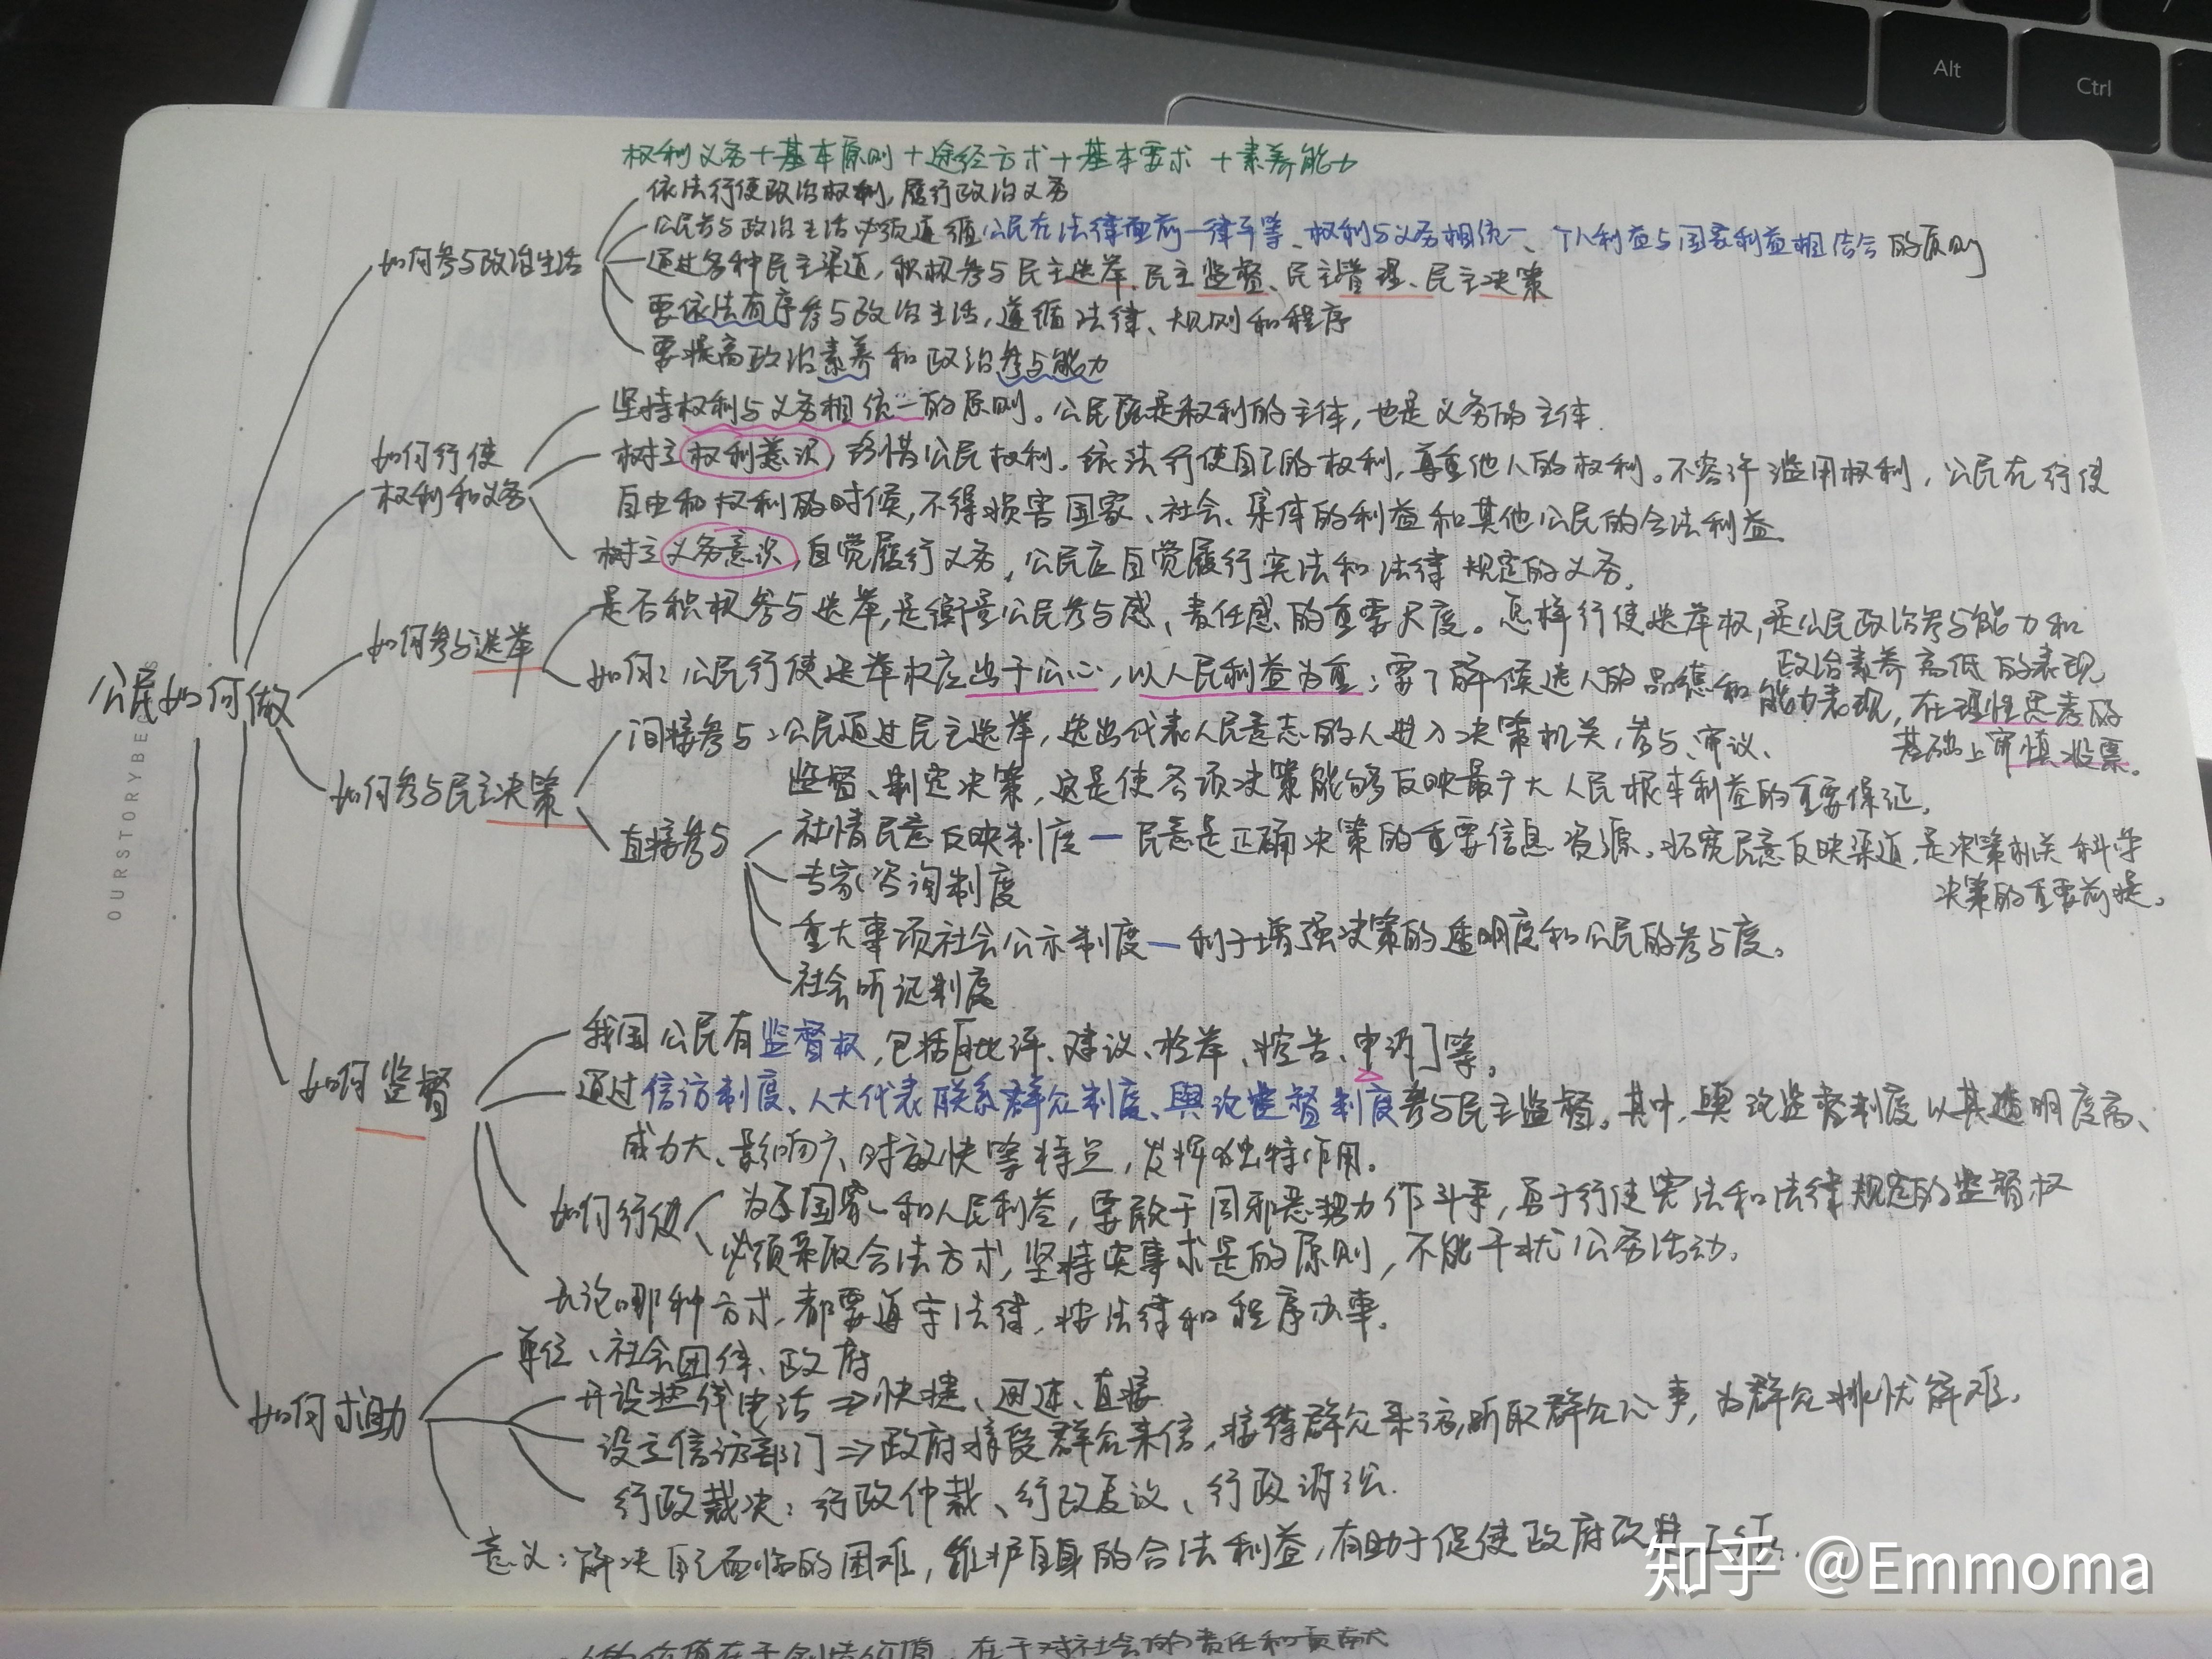 Alt
Ctrl
权利义务+基本原则+途经方式+基本要求+素养能力
如何参与政治生活
依法行使政治权利,履行政治义务
公民参与政治生活必须遵循公民在法律面前一律平等、权利与义务相统一、个人利益与国家利益相结合的原则
通过各种民主渠道,积极参与民主选举、民主监督、民主管理、民主决策
要依法有序参与政治生活,遵循法律、规则和程序
要提高政治素养和政治参与能力
如何行使
权利和义务
坚持权利与义务相统一的原则。公民既是权利的主体,也是义务的主体.
树立权利意识,珍惜公民权利。依法行使自己的权利,尊重他人的权利。不容许滥用权利,公民在行使
自由和权利的时候,不得损害国家、社会、集体的利益和其他公民的合法利益
树立义务意识,自觉履行义务,公民应自觉履行宪法和法律规定的义务。
如何参与选举
是否积极参与选举,是衡量公民参与感、责任感的重要尺度。怎样行使选举权,是公民政治参与能力和
政治素养高低的表现
如何:公民行使选举权应出于公心,以人民利益为重;要了解候选人的品德和能力表现,在理性思考的
基础上审慎投票。
公民如何做
如何参与民主决策
间接参与:公民通过民主选举,选出代表人民意志的人进入决策机关,参与、审议、
监督、制定决策,这是使各项决策能够反映最广大人民根本利益的重要保证。
直接参与
社情民意反映制度—民意是正确决策的重要信息资源。拓宽民意反映渠道,是决策机关科学
决策的重要前提。
专家咨询制度
重大事项社会公示制度—利于增强决策的透明度和公民的参与度。
社会听证制度
OURSTORYBE
如何监督
我国公民有监督权,包括[批评、建议、检举、控告、申诉]等。
通过信访制度、人大代表联系群众制度、舆论监督制度参与民主监督。其中,舆论监督制度以其透明度高、
威力大、影响广、时效快等特点,发挥独特作用。
如何行使
为了国家和人民利益,要敢于同邪恶势力作斗争,勇于行使宪法和法律规定的监督权
必须采取合法方式,坚持实事求是的原则,不能干扰公务活动。
无论哪种方式,都要遵守法律,按法律和程序办事。
如何求助
单位、社会团体、政府
开设热线电话⇒快捷、迅速、直接
设立信访部门⇒政府接受群众来信,接待群众来访,听取群众心事,为群众排忧解难。
行政裁决:行政仲裁、行政复议、行政诉讼.
意义:解决自己面临的困难,维护自身的合法利益,有助于促使政府改进工作.
知乎 @Emmoma
价值在于创造价值,在于对社会的责任和贡献